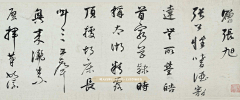 贈張旭
張公性嗜酒豁
達無所營皓
首窮草隸時
稱太湖精露
頂據胡床長
叫三五聲
興來灑素
壁揮筆如流